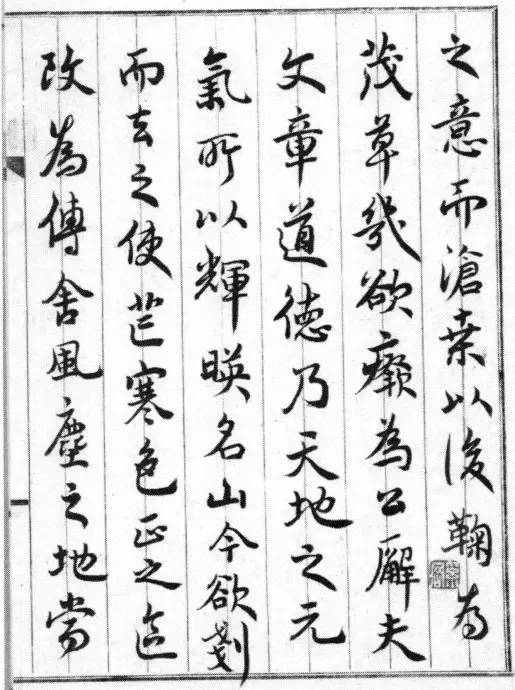 之意而滄桑以後鞠為
茂草幾欲癈為公廨夫
文章道德乃天地之元
氣所以輝暎名山今欲剗
而去之使芒寒色正之區
改為傳舍風塵之地當